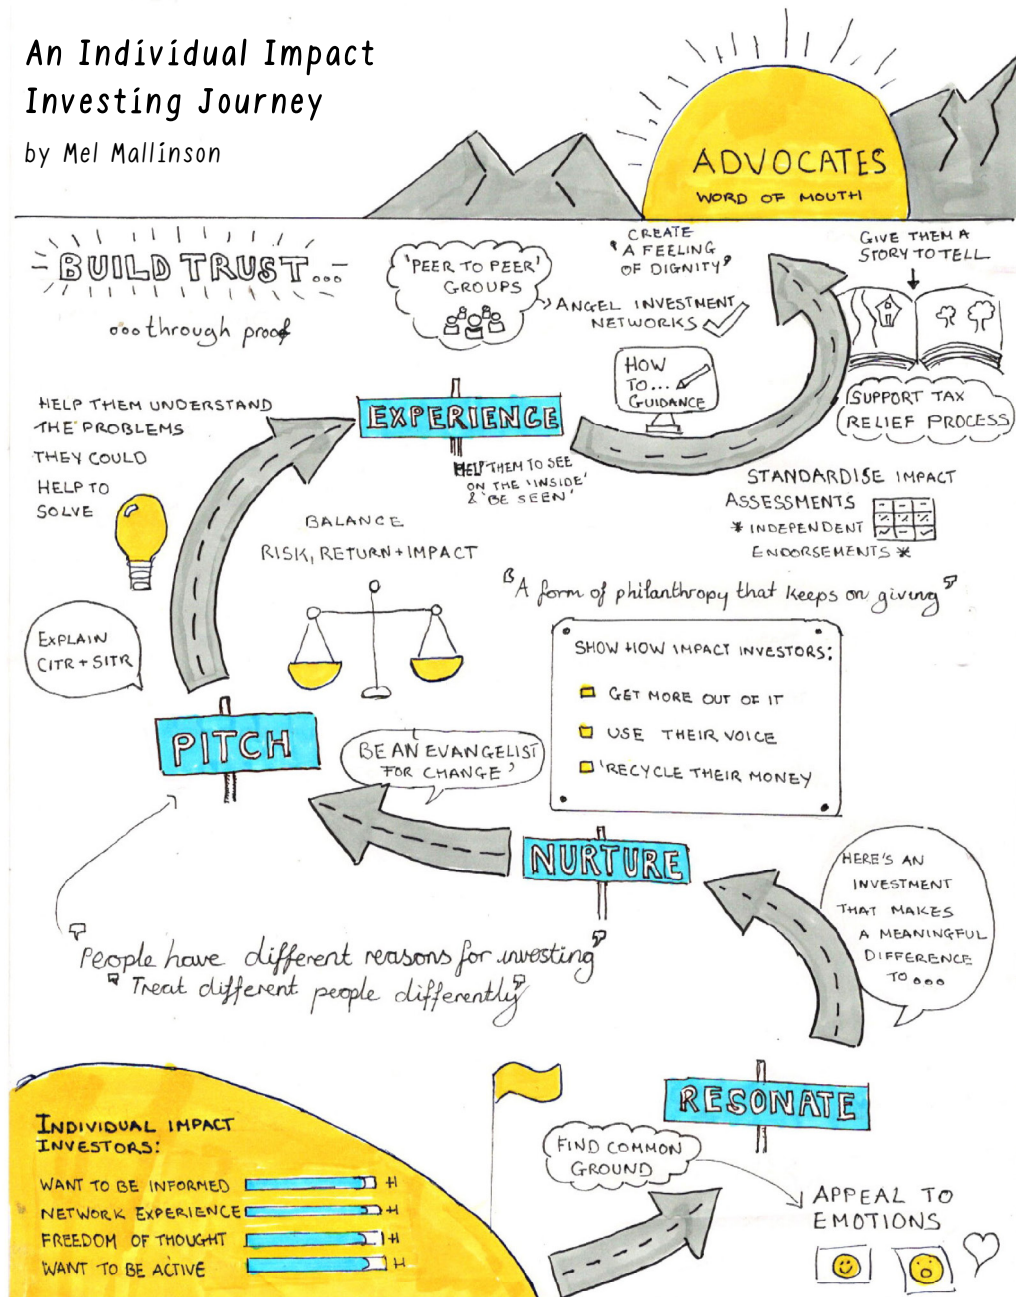 An Individual Impact
Investing Journey
by Mel Mallinson
ADVOCATES
WORD OF MOUTH
BUILD TRUST...
...through proof
'PEER TO PEER'
GROUPS
CREATE
'A FEELING
OF DIGNITY'
ANGEL INVESTMENT
NETWORKS
GIVE THEM A
STORY TO TELL
HOW
TO...
GUIDANCE
SUPPORT TAX
RELIEF PROCESS
HELP THEM UNDERSTAND
THE PROBLEMS
THEY COULD
HELP TO
SOLVE
EXPERIENCE
HELP THEM TO SEE
ON THE 'INSIDE'
& 'BE SEEN'
STANDARDISE IMPACT
ASSESSMENTS
* INDEPENDENT
ENDORSEMENTS *
BALANCE
RISK, RETURN + IMPACT
"A form of philanthropy that keeps on giving"
EXPLAIN
CITR + SITR
SHOW HOW IMPACT INVESTORS:
GET MORE OUT OF IT
USE THEIR VOICE
'RECYCLE THEIR MONEY
PITCH
'BE AN EVANGELIST
FOR CHANGE'
NURTURE
HERE'S AN
INVESTMENT
THAT MAKES
A MEANINGFUL
DIFFERENCE
TO...
"People have different reasons for investing"
"Treat different people differently"
RESONATE
FIND COMMON
GROUND
APPEAL TO
EMOTIONS
INDIVIDUAL IMPACT
INVESTORS:
WANT TO BE INFORMED
NETWORK EXPERIENCE
FREEDOM OF THOUGHT
WANT TO BE ACTIVE